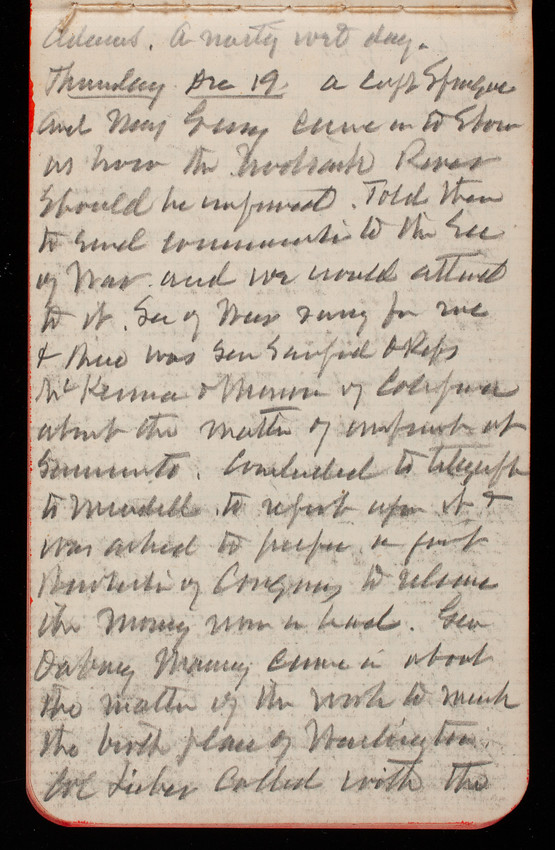 Adams. A nasty wet day.
Thursday Dec 19. a Capt Sprague
and May Geary came in to Show
us how the River
Should be improved. Told them
to send communicatn to the Sec
of War and we would attend
to it. Sec of War rang for me
& there was Sen & Reps
McKenna & of California
about the matter of improvmt at
Sacramento. Concluded to telegraph
to Mendell to report upon it &
was asked to prepare a joint
Resolution of Congress to release
the Money now in hand. Gen
Dabney Maury came in about
the matter of the work to mark
the birth place of Washington.
Col Lieber called with the